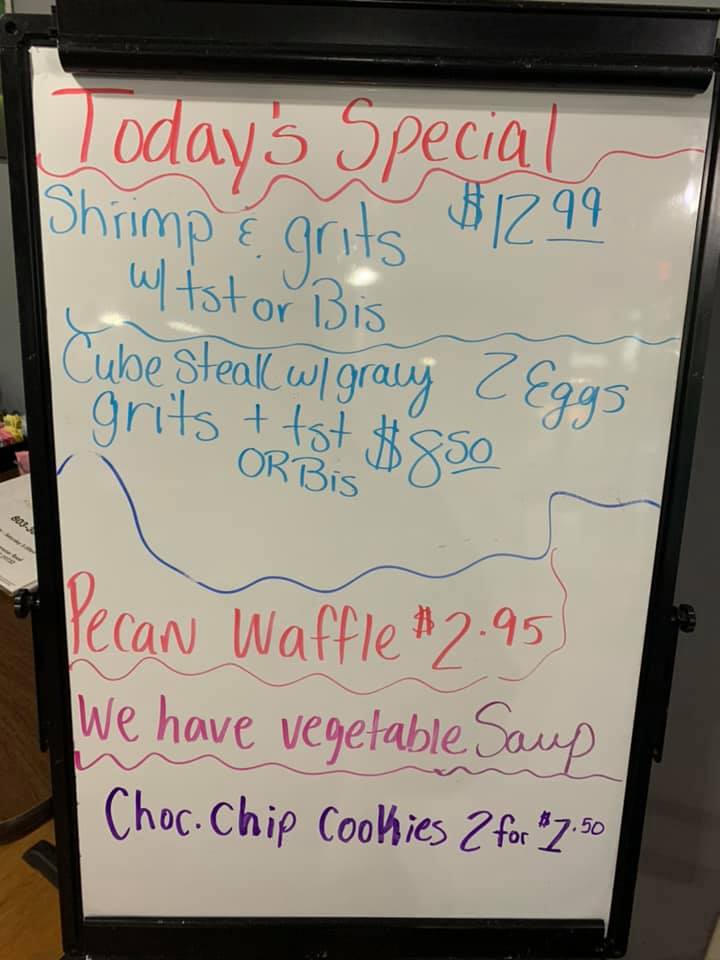 Today's Special
Shrimp & grits $12.99
w/ tst or Bis
Cube Steak w/ gravy 2 Eggs
grits + tst $8.50
OR Bis
Pecan Waffle $2.95
We have vegetable Soup
Choc. Chip Cookies 2 for $1.50
803-3